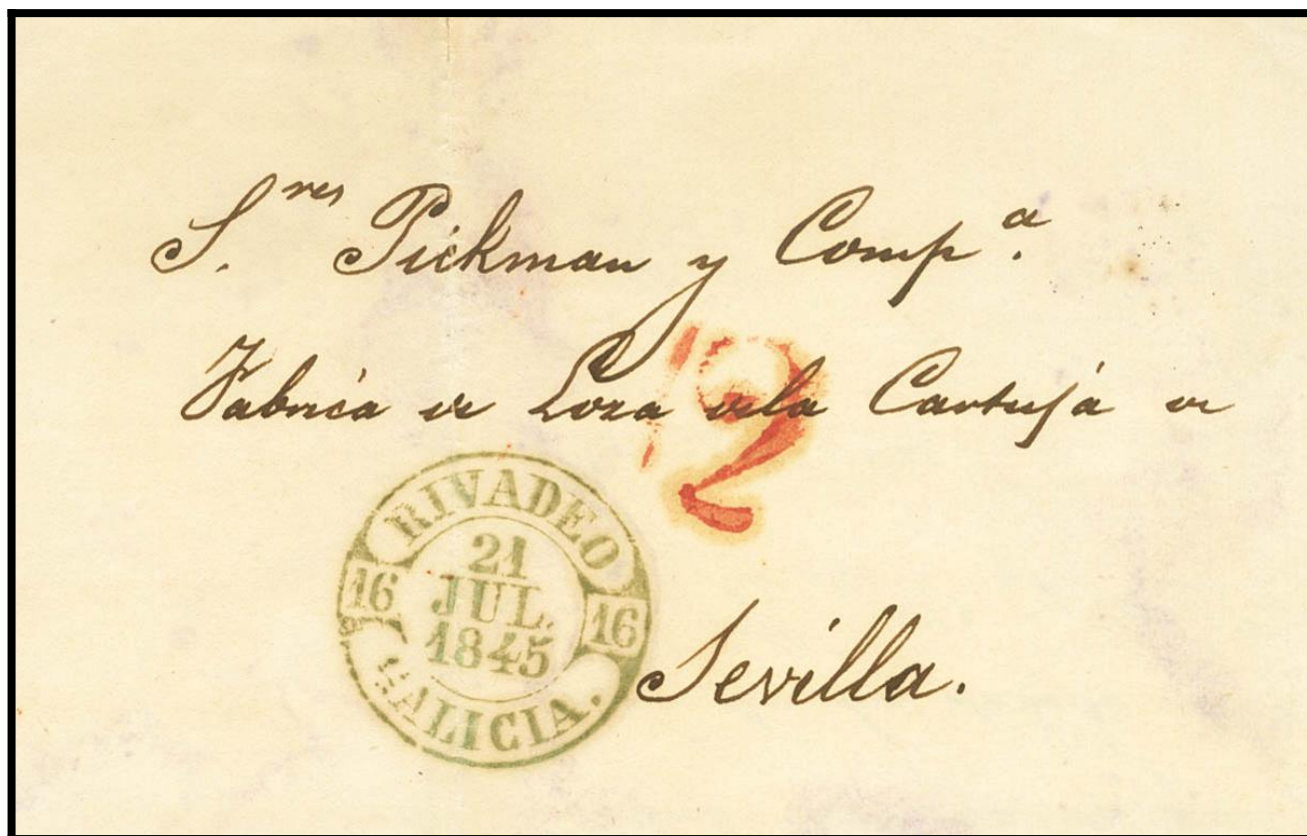 S.res Pickman y Comp.a
Fabrica de Loza dela Cartuja de
12
RIVADEO
21
JUL.
1845
16 16
GALICIA.
Sevilla.